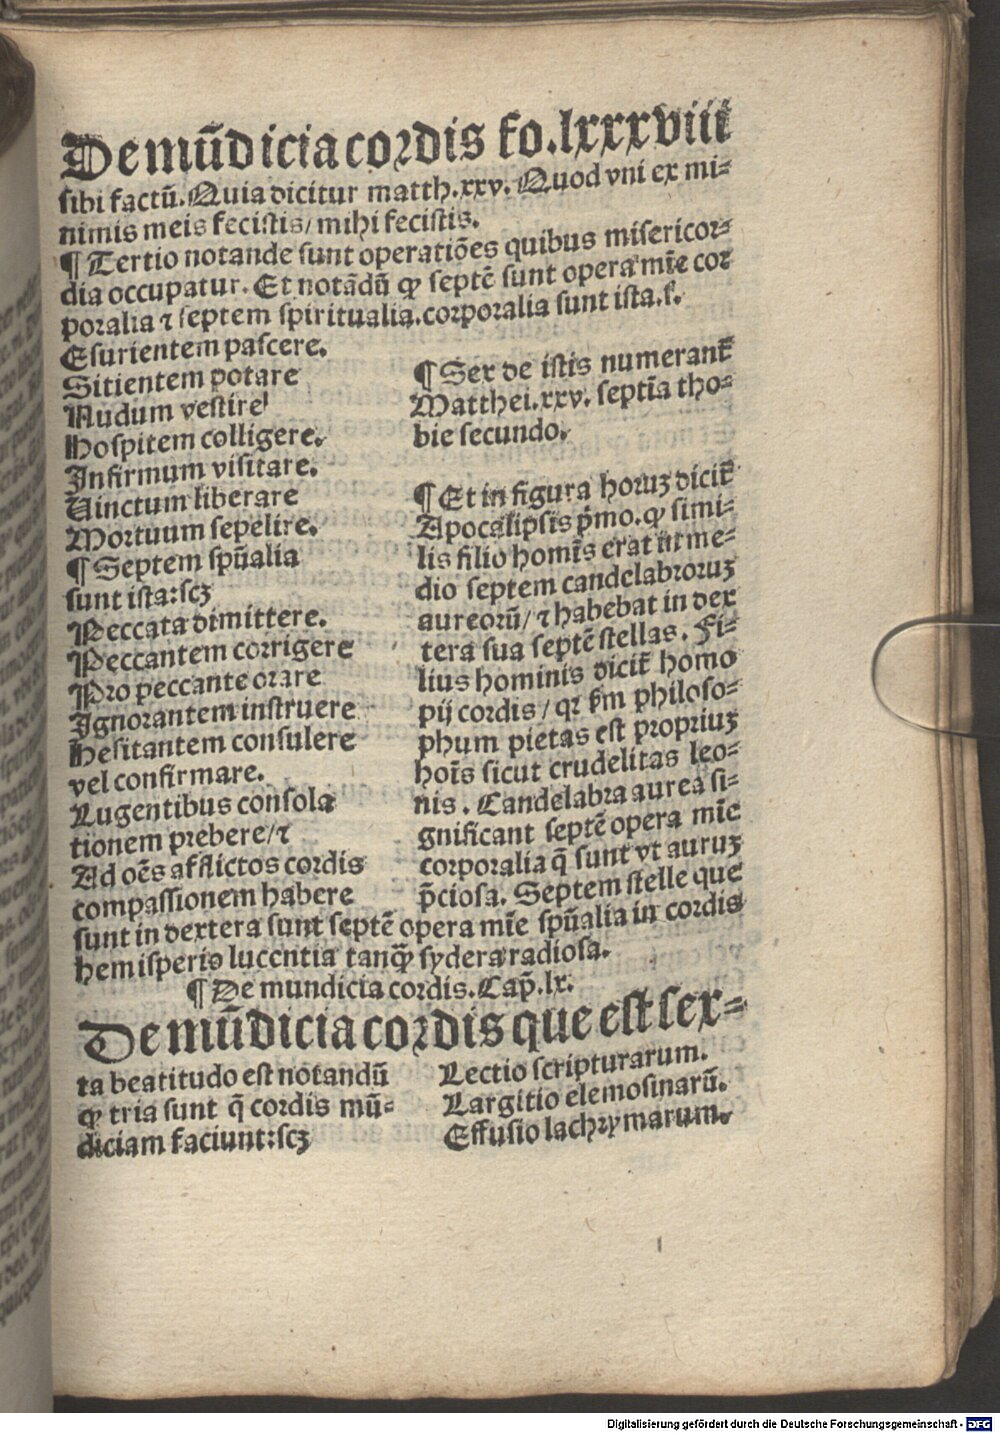 De mūdicia cordis fo.lxxxviii
sibi factū. Quia dicitur matth.xxv. Quod vni ex mi-
nimis meis fecistis/ mihi fecistis.
¶ Tertio notande sunt operatiōes quibus misericor-
dia occupatur. Et notādū ꝙ septē sunt opera mīe cor
poralia ⁊ septem spiritualia. corporalia sunt ista.s.
Esurientem pascere.
Sitientem potare
Nudum vestire
Hospitem colligere.
Infirmum visitare.
Uinctum liberare
Mortuum sepelire.
¶ Septem spūalia
sunt ista:scꝫ
Peccata dimittere.
Peccantem corrigere
Pro peccante orare
Ignorantem instruere
Hesitantem consulere
vel confirmare.
Lugentibus consola
tionem prebere/⁊
Ad oēs afflictos cordis
compassionem habere
¶ Sex de istis numerant̄
Matthei.xxv. septīa tho-
bie secundo.
¶ Et in figura horuꝫ dicit̄
Apocalipsis p̄mo. ꝙ simi-
lis filio homīs erat in me-
dio septem candelabroruꝫ
aureorū/ ⁊ habebat in dex
tera sua septē stellas. Fi-
lius hominis dicit̄ homo
pij cordis/ qꝛ ẜm philoso-
phum pietas est propriuꝫ
hoīs sicut crudelitas leo-
nis. Candelabra aurea si-
gnificant septē opera mīe
corporalia q̄ sunt vt auruꝫ
p̄ciosa. Septem stelle que
sunt in dextera sunt septē opera mīe spūalia in cordis
hemisperio lucentia tanꝙ̄ sydera radiosa.
¶ De mundicia cordis. Cap̄.lx.
De mūdicia cordis que est sex-
ta beatitudo est notandū
ꝙ tria sunt q̄ cordis mū-
diciam faciunt:scꝫ
Lectio scripturarum.
Largitio elemosinarū.
Effusio lachrymarum.
Digitalisierung gefördert durch die Deutsche Forschungsgemeinschaft - DFG